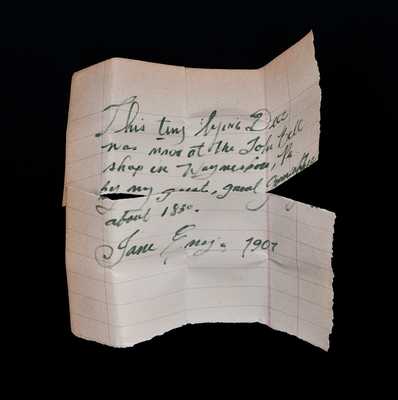 This tiny lying
was made at the John Bell
shop in Waynesboro, Pa
by my great, great
about
Jane 1907